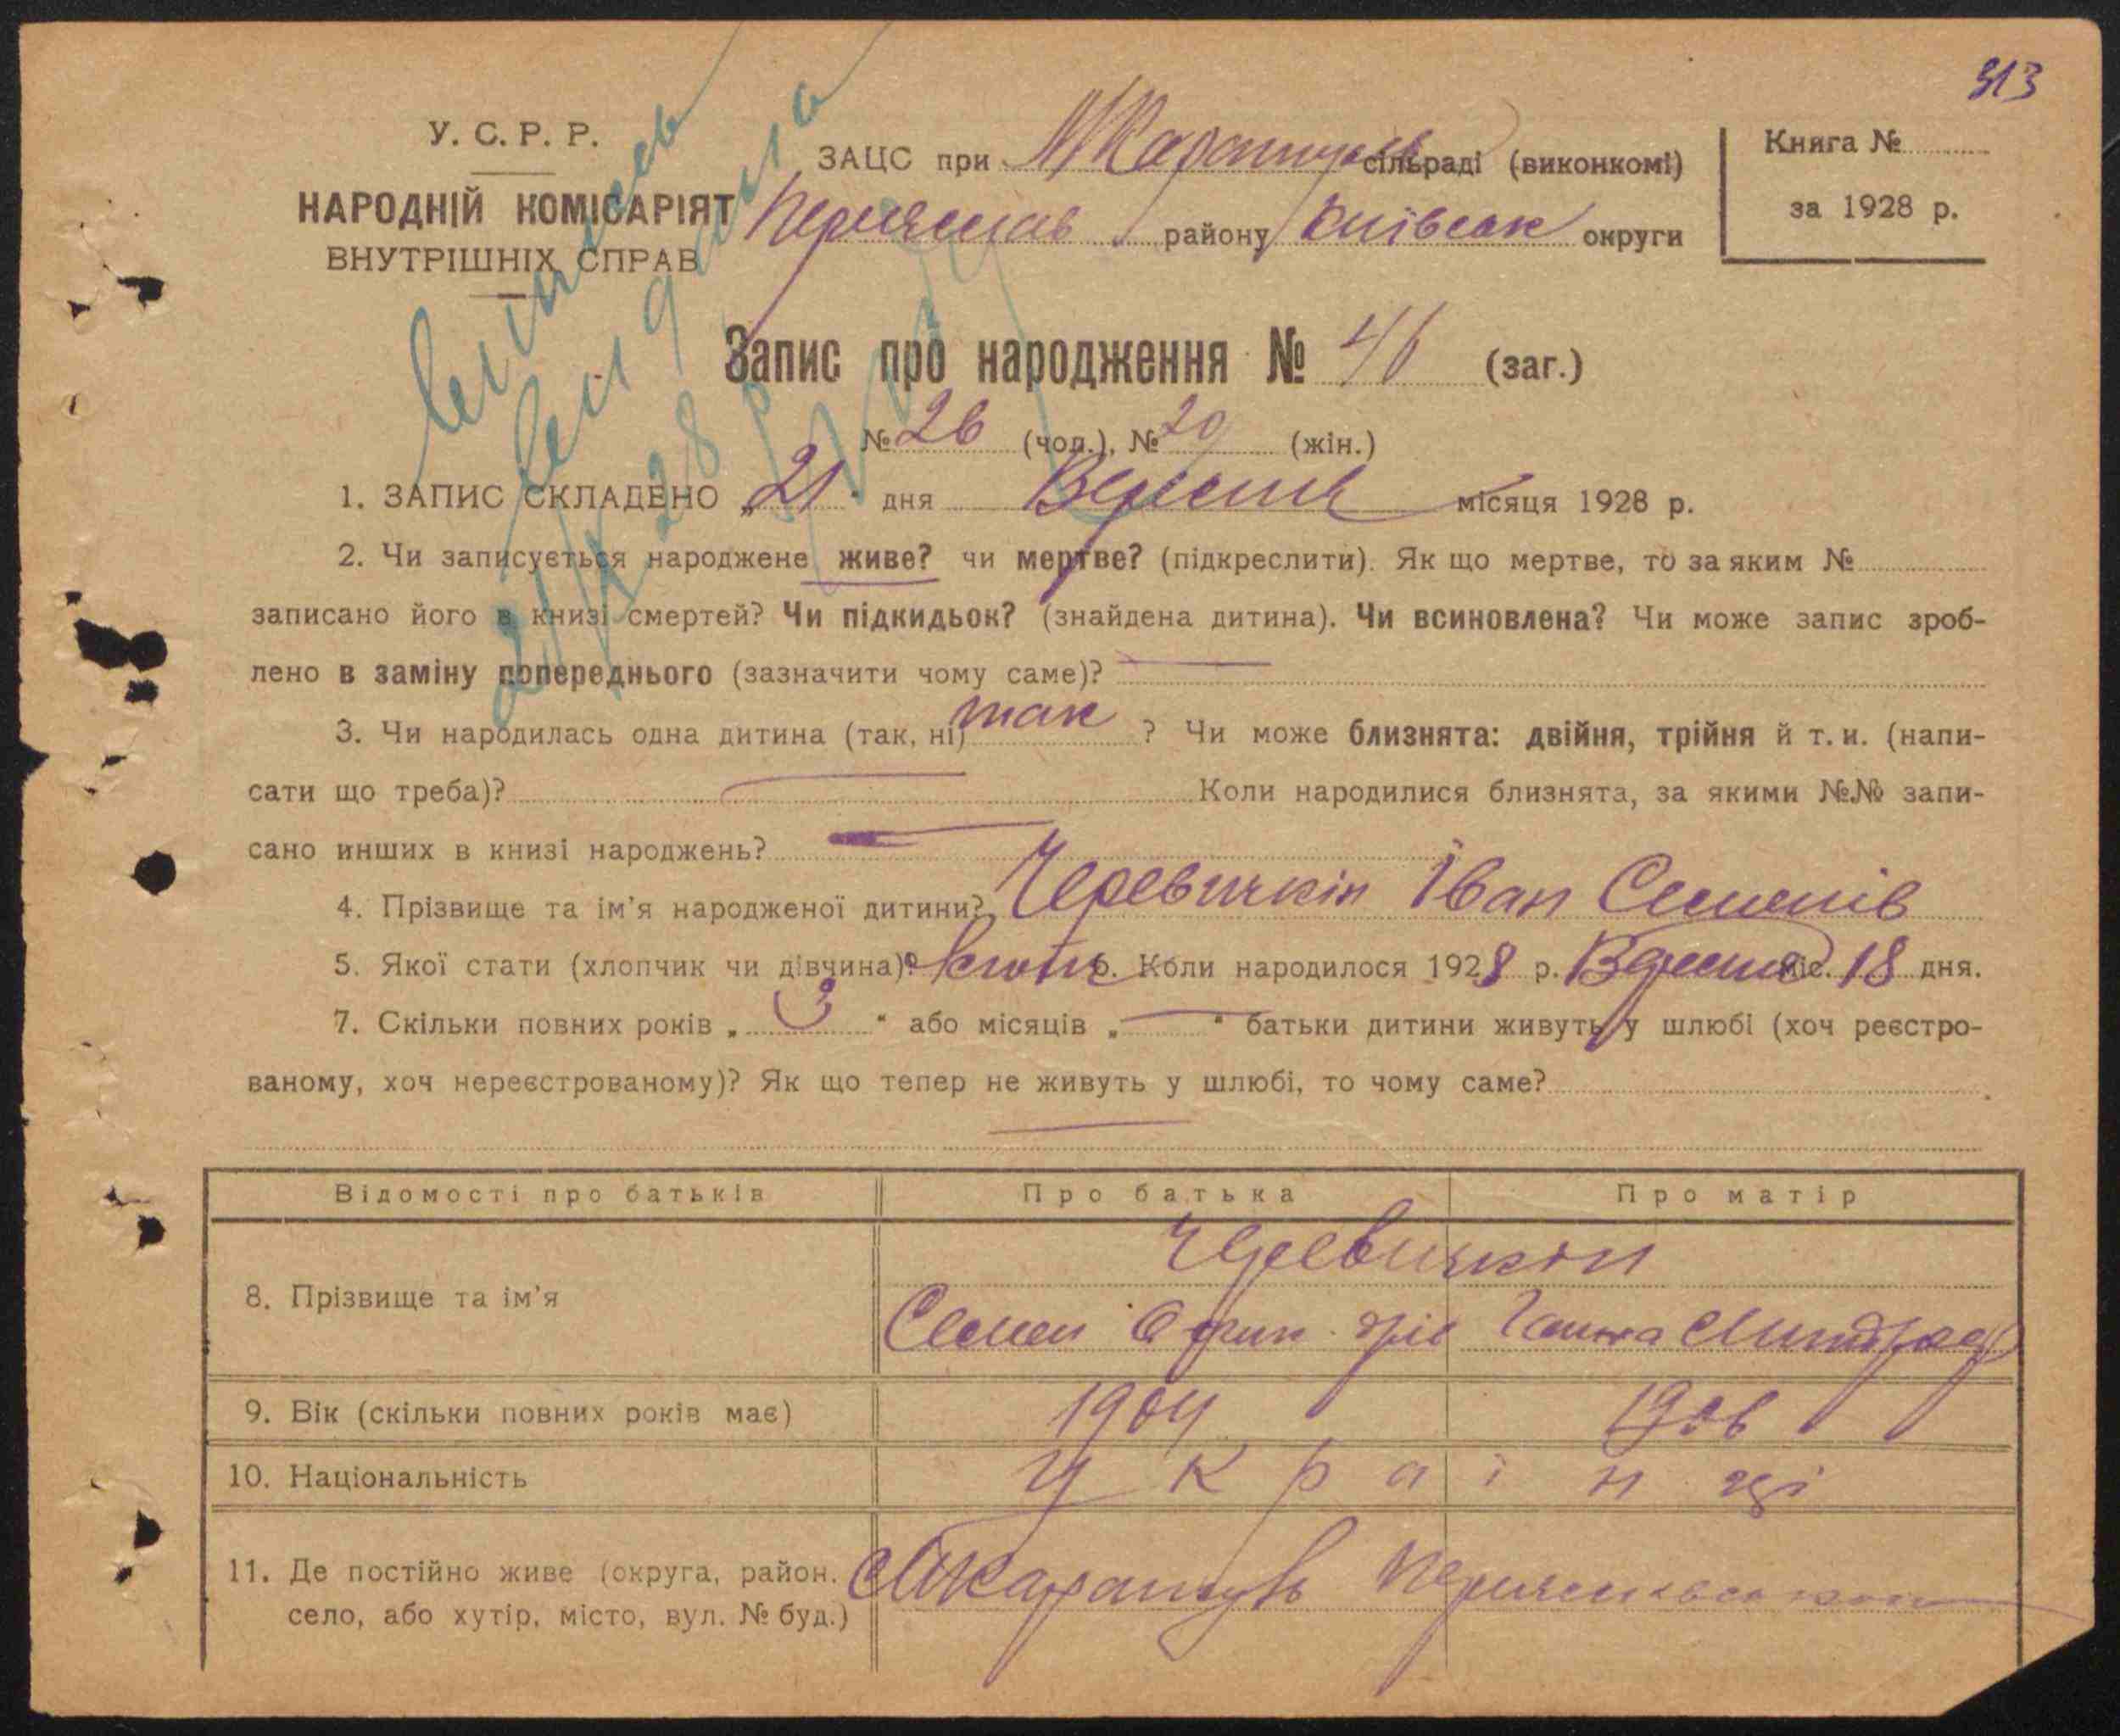 313
У. С. Р. Р.
НАРОДНІЙ КОМІСАРІЯТ
ВНУТРІШНІХ СПРАВ
ЗАЦС при М/Каратул сільраді (виконкомі)
Переяслав району Київськ округи
Книга №
за 1928 р.
Запис про народження № 46 (заг.)
№ 26 (чол.), № 20 (жін.)
1. ЗАПИС СКЛАДЕНО „21" дня Вересня місяця 1928 р.
2. Чи записується народжене живе? чи мертве? (підкреслити). Як що мертве, то за яким №
записано його в книзі смертей? Чи підкидьок? (знайдена дитина). Чи всиновлена? Чи може запис зроб-
лено в заміну попереднього (зазначити чому саме)?
3. Чи народилась одна дитина (так, ні) так ? Чи може близнята: двійня, трійня й т. и. (напи-
сати що треба)? Коли народилися близнята, за якими №№ запи-
сано инших в книзі народжень?
4. Прізвище та ім'я народженої дитини? Черевичкін Іван Семенів
5. Якої стати (хлопчик чи дівчина)? 6. Коли народилося 1928 р. Вересня міс. 18 дня.
7. Скільки повних років „ 3 " або місяців „ " батьки дитини живуть у шлюбі (хоч реєстро-
ваному, хоч нереєстрованому)? Як що тепер не живуть у шлюбі, то чому саме?
Відомості про батьків Про батька Про матір
8. Прізвище та ім'я Черевичкін
Семен Ганна
9. Вік (скільки повних років має) 1904 1906
10. Національність Українці
11. Де постійно живе (округа, район.
село, або хутір, місто, вул. № буд.) Каратуль